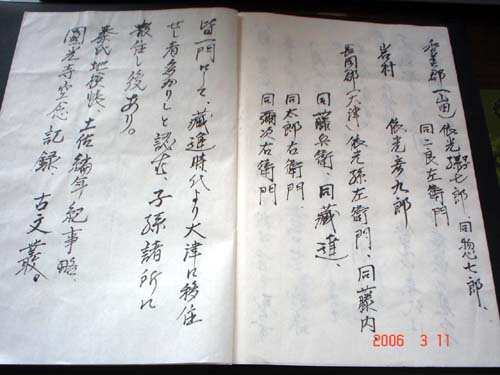 香美郡(山田)依光孫七郎、同惣七郎、
同二良左衛門
岩村　依光彦九郎
長岡郡(大津)依光孫左衛門、同藤内
同藤兵衛、同蔵進、
同太郎右衛門
同彌次右衛門
皆一門にして、蔵進時代より大津に移住
せし者多かりしと認む、子孫諸所に
散住し後あり。
秦氏地検帳、土佐編年紀事略、
圓光寺空念記録、古文叢。
2006 3 11